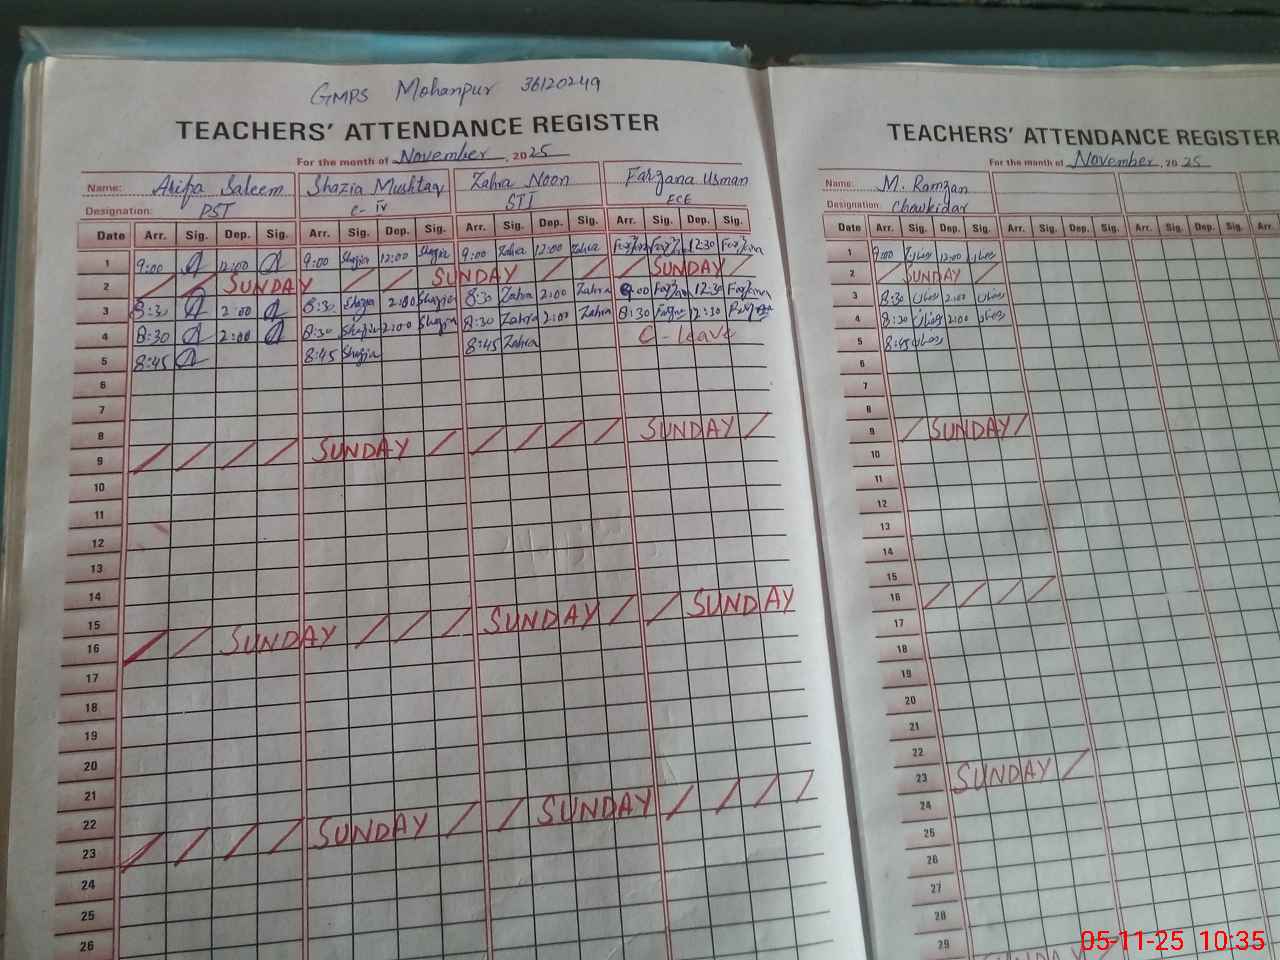 GMPS Mohanpur 36120249
TEACHERS' ATTENDANCE REGISTER
For the month of November, 2025
Name: Arifa Saleem Shazia Mushtaq Zahra Noon Farzana Usman
Designation: PST C-IV STI ECE
Date Arr. Sig. Dep. Sig. Arr. Sig. Dep. Sig. Arr. Sig. Dep. Sig. Arr. Sig. Dep. Sig.
1 9:00 12:00 9:00 Shazia 12:00 Shazia 9:00 Zahra 12:00 Zahra 12:30
2 SUNDAY SUNDAY SUNDAY
3 8:30 2:00 8:30 Shazia 2:00 Shazia 8:30 Zahra 2:00 Zahra 9:00 12:30
4 8:30 2:00 8:30 Shazia 2:00 Shazia 8:30 Zahra 2:00 Zahra 8:30 12:30
5 8:45 8:45 Shazia 8:45 Zahra C-leave
6
7
8
9 SUNDAY SUNDAY
10
11
12
13
14
15
16 SUNDAY SUNDAY SUNDAY
17
18
19
20
21
22
23 SUNDAY SUNDAY
24
25
26
TEACHERS' ATTENDANCE REGISTER
For the month of November, 2025
Name: M. Ramzan
Designation: Chawkidar
Date Arr. Sig. Dep. Sig. Arr. Sig. Dep. Sig. Arr. Sig. Dep. Sig.
1 9:00 رمضان 12:00 رمضان
2 SUNDAY
3 8:30 رمضان 2:00 رمضان
4 8:30 رمضان 2:00 رمضان
5 8:45 رمضان
6
7
8
9 SUNDAY
10
11
12
13
14
15
16
17
18
19
20
21
22
23 SUNDAY
24
25
26
27
28
29
SUNDAY
05-11-25 10:35